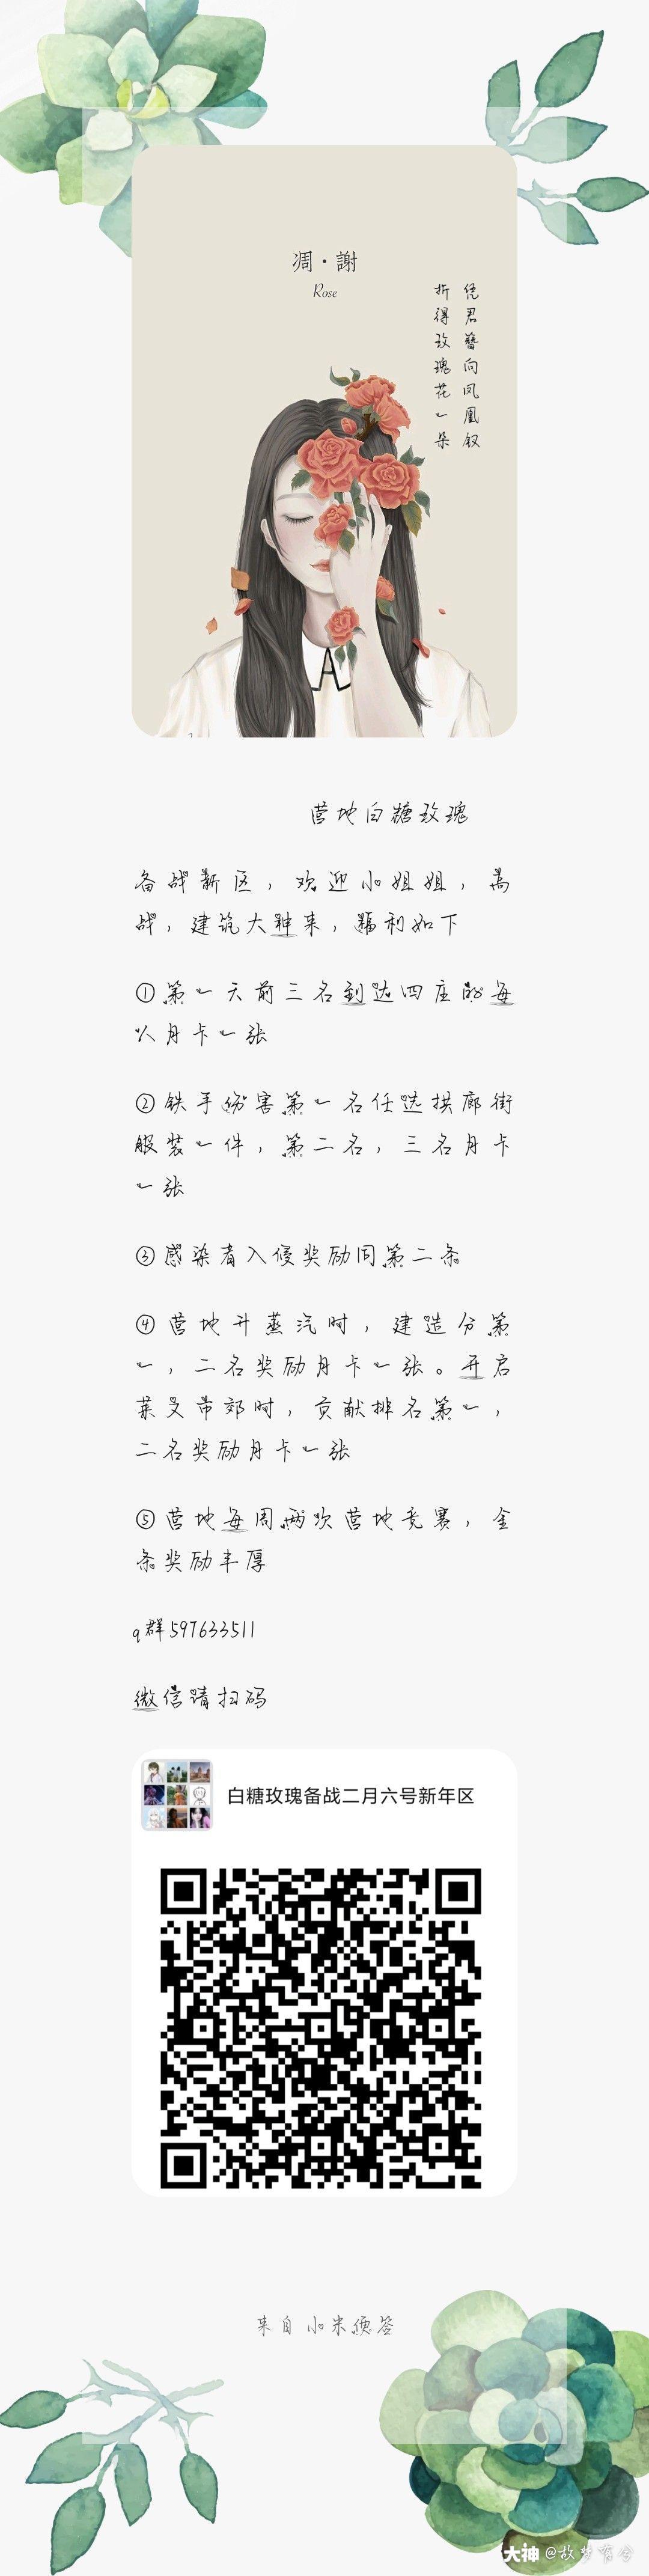 凋·謝
Rose
凭君簪向凤凰钗
折得玫瑰花一朵
营地白糖玫瑰
备战新区，欢迎小姐姐，高
战，建筑大神来，福利如下
①第一天前三名到达四座的每
人月卡一张
②铁手伤害第一名任选拱廊街
服装一件，第二名，三名月卡
一张
③感染者入侵奖励同第二条
④营地升蒸汽时，建造分第
一，二名奖励月卡一张。开启
莱文市郊时，贡献排名第一，
二名奖励月卡一张
⑤营地每周两次营地竞赛，金
条奖励丰厚
q群597633511
微信请扫码
白糖玫瑰备战二月六号新年区
来自小米便签
大神@故梦有兮